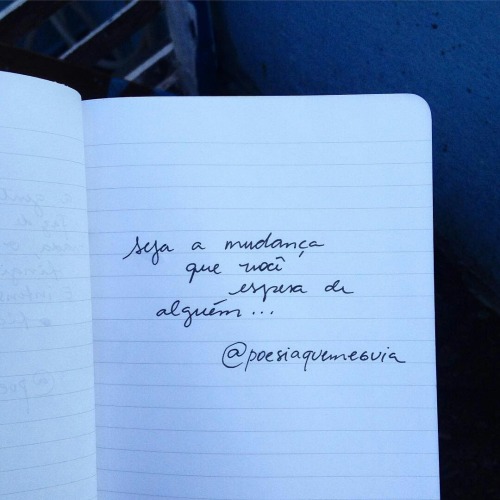 seja a mudança
que você
espera de
alguém...
@poesiaquemeguia